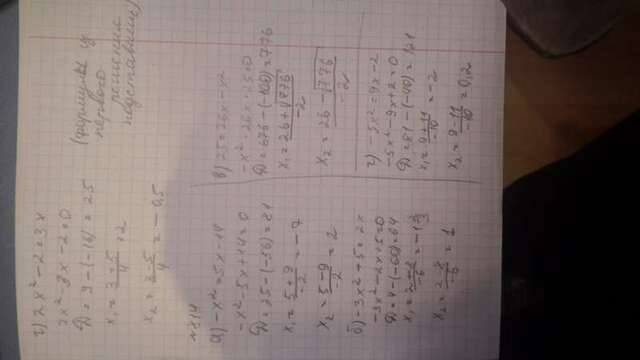 г) 2x² - 2 = 3x
2x² - 3x - 2 = 0
D = 9 - (-16) = 25
x₁ = (3 + 5)/4 = 2
x₂ = (3 - 5)/4 = -0,5
(формулы из
первого
подставлены)
а) -x² = 5x - 14
-x² - 5x + 14 = 0
D = 25 - (-56) = 81
x₁ = (5 + 9)/-2 = -7
x₂ = (5 - 9)/-2 = 2
б) -3x² + 5 = 2x
-3x² - 2x + 5 = 0
D = 4 - (-60) = 64
x₁ = (2 + 8)/-6 =
x₂ = (2 - 8)/-6 = 1
в) 25 = 26x - x²
-x² - 26x - 25 = 0
D = 676 - (-100) = 776
x₁ = (26 + √776)/-2
x₂ = (26 - √776)/-2
г) -5x² = 9x - 2
-5x² - 9x + 2 = 0
D = 81 - (-40) = 121
x₁ = (9 + 11)/-10 = -2
x₂ = (9 - 11)/-10 = 0,2